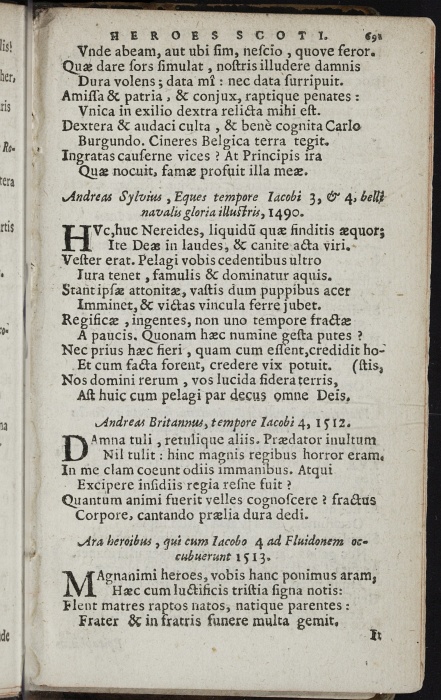 HEROES SCOTI. 691
Vnde abeam, aut ubi ſim, neſcio, quove feror.
Quæ dare ſors ſimulat, noſtris illudere damnis
Dura volens; data mî: nec data ſurripuit.
Amiſſa & patria, & conjux, raptique penates:
Vnica in exilio dextra relicta mihi eſt.
Dextera & audaci culta, & benè cognita Carlo
Burgundo. Cineres Belgica terra tegit.
Ingratas cauſerne vices? At Principis ira
Quæ nocuit, famæ profuit illa meæ.
Andreas Sylvius, Eques tempore Iacobi 3, & 4, belli
navalis gloria illuſtris, 1490.
HVc, huc Nereides, liquidū quæ finditis æquor;
Ite Deæ in laudes, & canite acta viri.
Veſter erat. Pelagi vobis cedentibus ultro
Iura tenet, famulis & dominatur aquis.
Stant ipſæ attonitæ, vaſtis dum puppibus acer
Imminet, & victas vincula ferre jubet.
Regificæ, ingentes, non uno tempore fractæ
A paucis. Quonam hæc numine geſta putes?
Nec prius hæc fieri, quam cum eſſent, credidit ho-
Et cum facta forent, credere vix potuit. (ſtis,
Nos domini rerum, vos lucida ſidera terris,
Aſt huic cum pelagi par decus omne Deis.
Andreas Britannus, tempore Iacobi 4, 1512.
DAmna tuli, retulique aliis. Prædator inultum
Nil tulit: hinc magnis regibus horror eram.
In me clam coeunt odiis immanibus. Atqui
Excipere inſidiis regia reſne fuit?
Quantum animi fuerit velles cognoſcere? fractus
Corpore, cantando prælia dura dedi.
Ara heroibus, qui cum Iacobo 4 ad Fluidonem oc-
cubuerunt 1513.
MAgnanimi heroes, vobis hanc ponimus aram,
Hæc cum luctificis triſtia ſigna notis:
Flent matres raptos natos, natique parentes:
Frater & in fratris funere multa gemit.
It